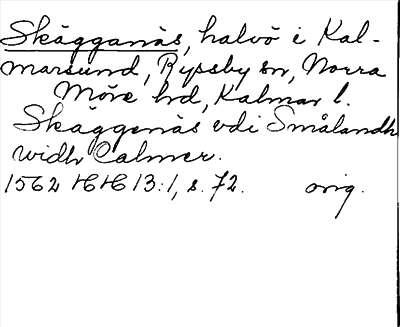 Skägganäs, halvö i Kal-
marsund, Rypsby sn, Norra
Möre hd, Kalmar l.
Skäggenäs vdi Smålandh
widh Calmer.
1562 HH 13:1, s. 72. orig.